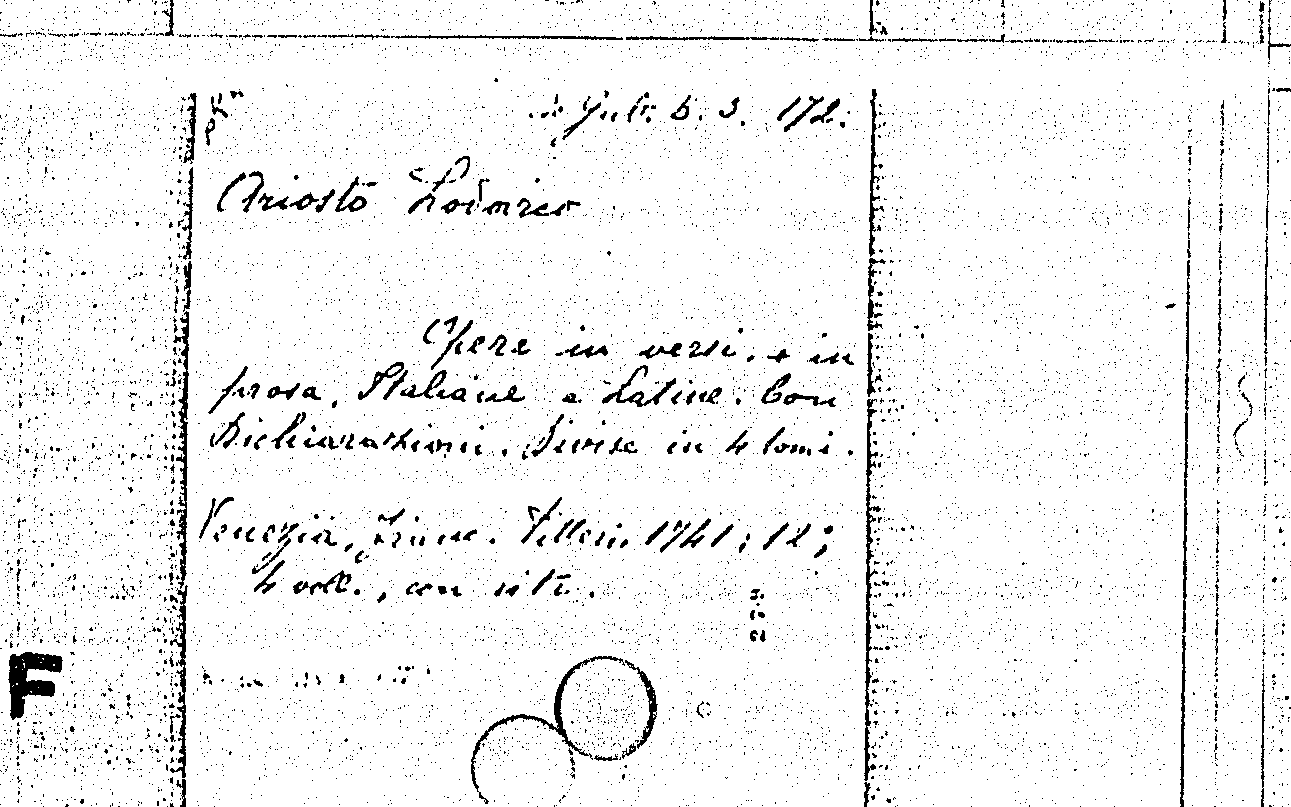 5. 3. 172.
Ariosto Lodovico
Opere in versi. e in
prosa, Italiane e Latine. Con
Dichiarazioni. Divise in 4 tomi.
Venezia, Franc. Pitteri. 1741; 12;
4 voll., con ritr.
F